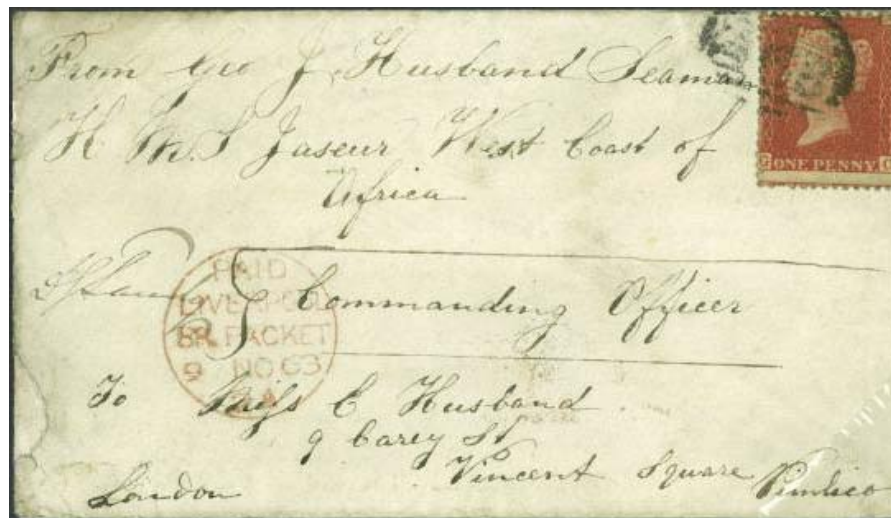 From Geo J. Husband Seaman
H.M.S Jaseur West Coast of
Africa
ONE PENNY
Commanding Officer
PAID
LIVERPOOL
BR. PACKET
9 NO 63
To Miss C Husband
9 Carey St
Vincent Square Pimlico
London